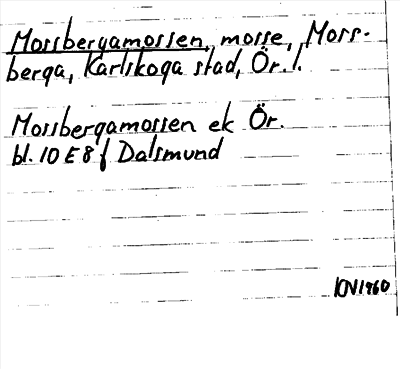 Mossbergamossen, mosse, Moss-
berga, Karlskoga stad, Ör. l.
Mossbergamossen ek Ör.
bl. 10 E 8 f Dalsmund
KN 1960